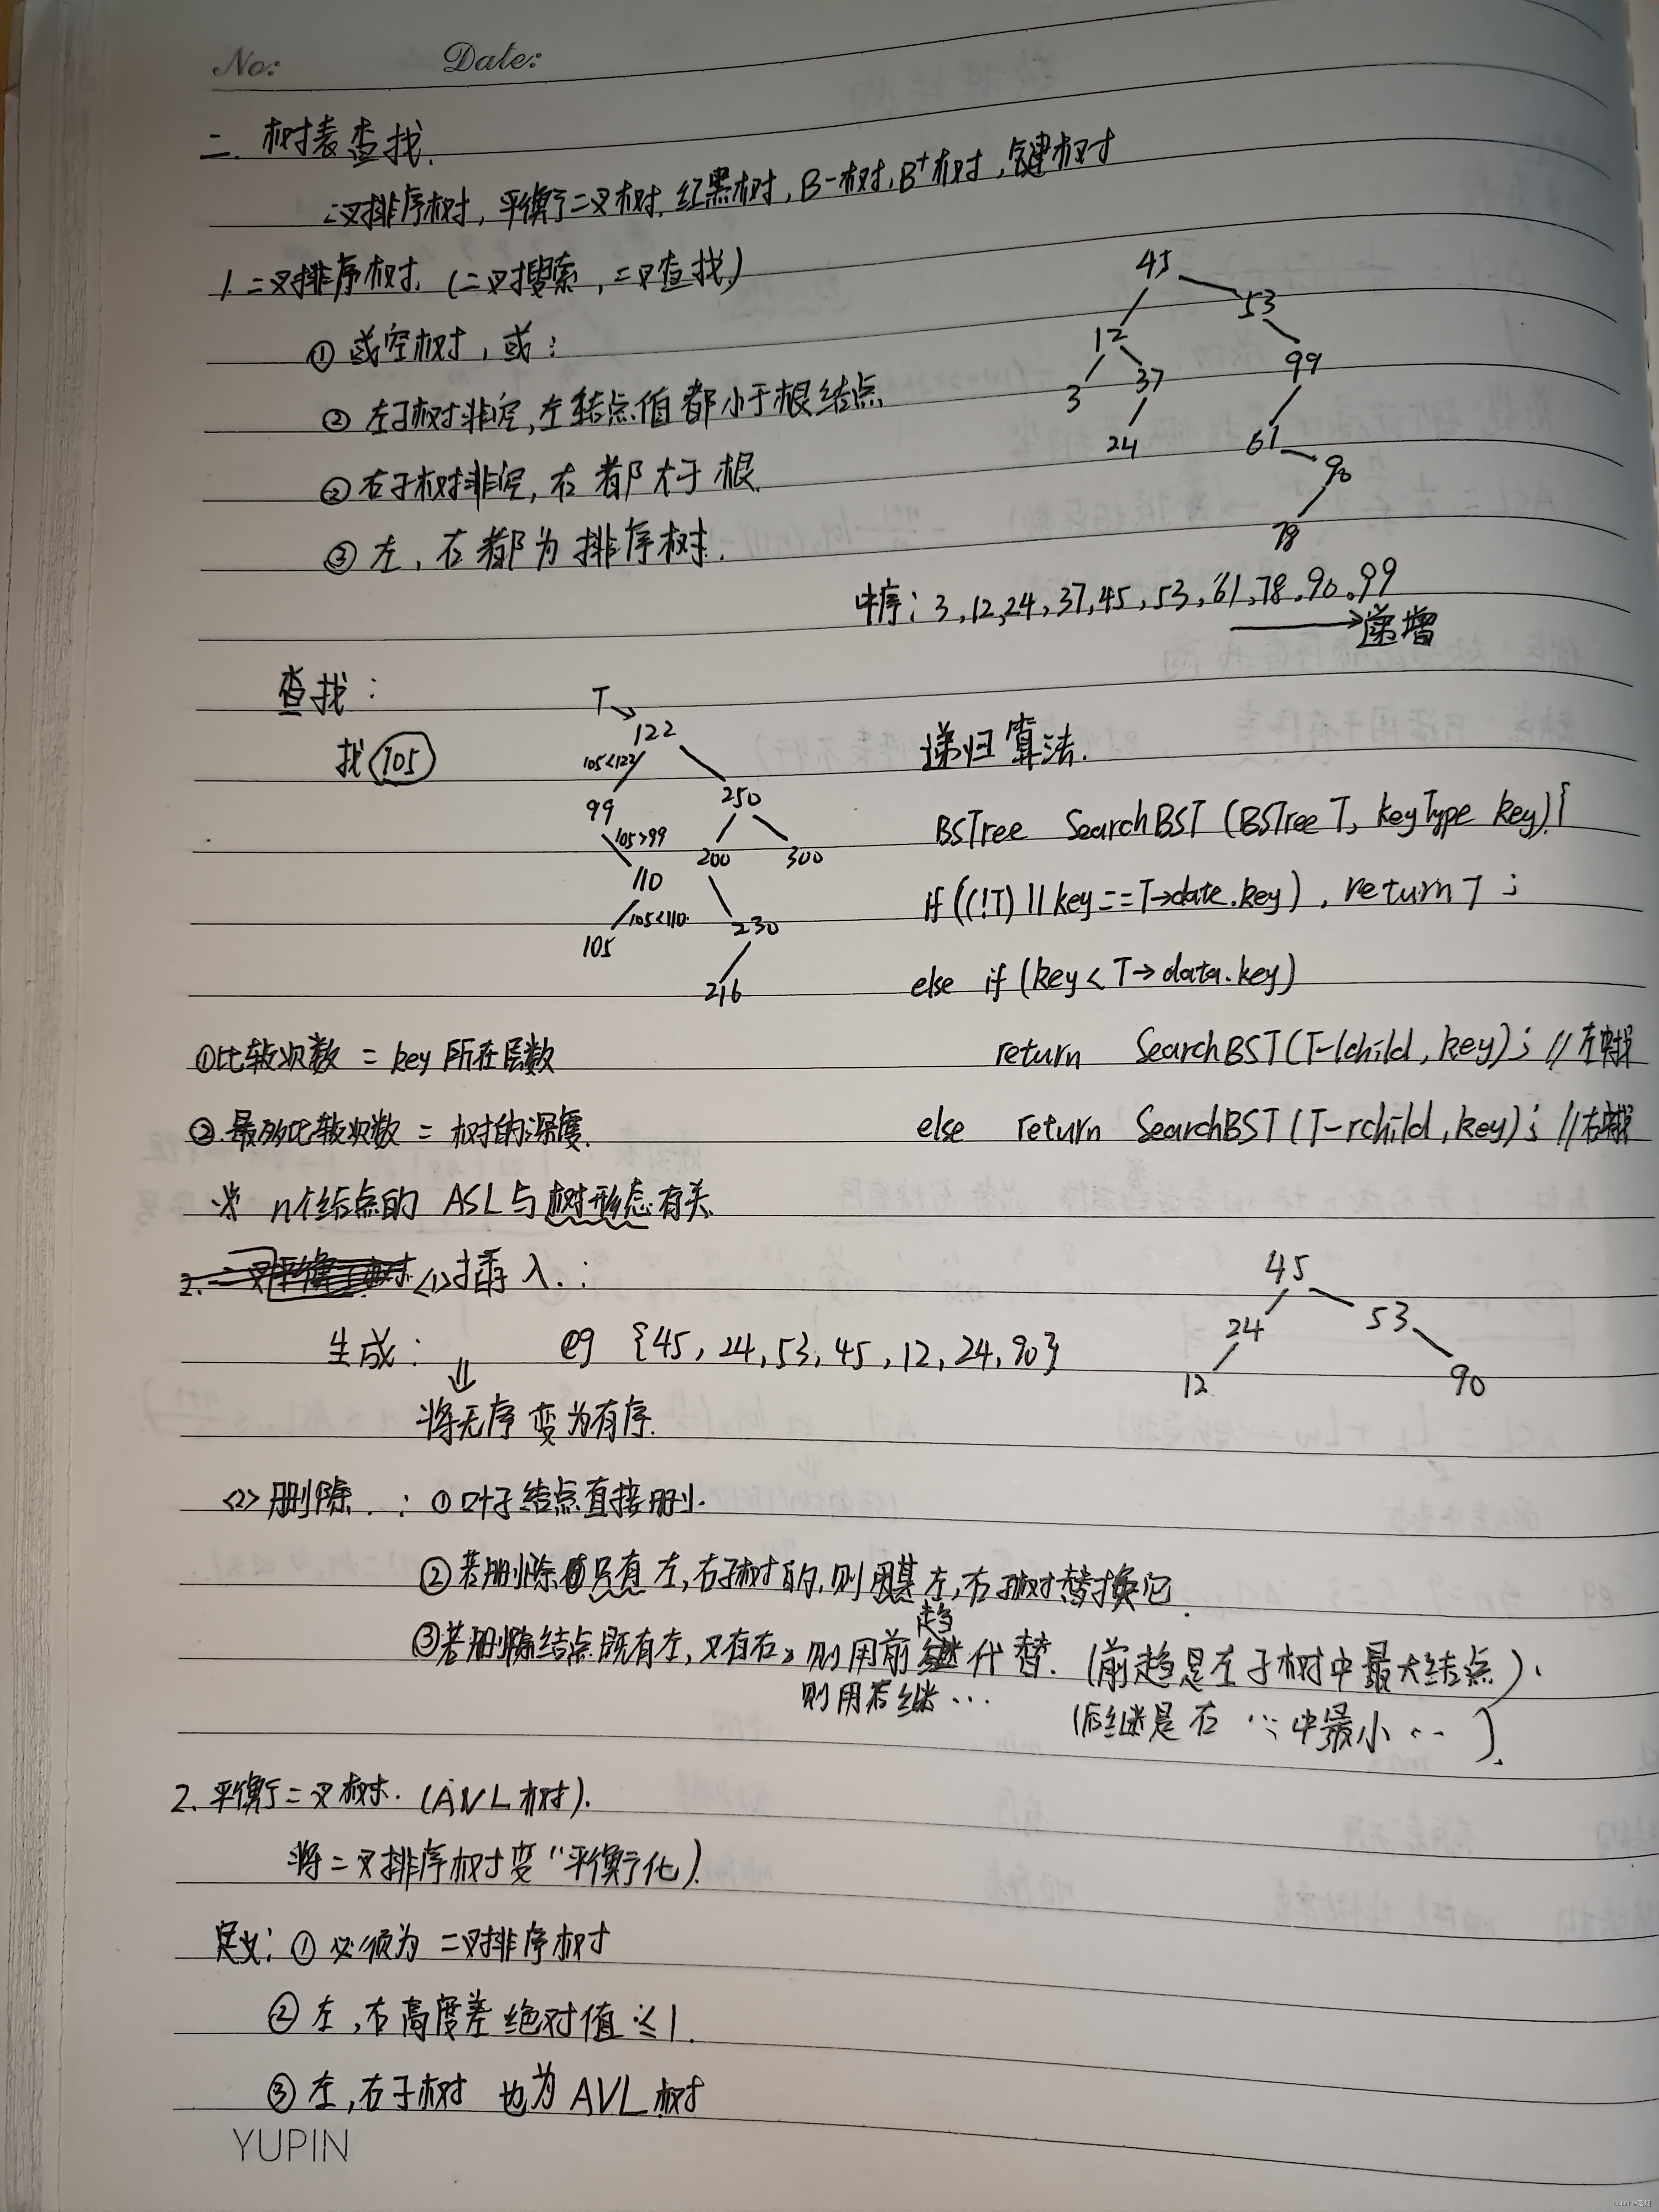 No: Date:
二. 树表查找.
二叉排序树, 平衡二叉树, 红黑树, B-树, B+树, 键树
1. 二叉排序树. (二叉搜索, 二叉查找)
① 或空树, 或:
② 左子树非空, 左结点值都小于根结点
② 右子树非空, 右都大于根.
③ 左, 右都为排序树.
45
53
12
99
3
37
24
61
90
78
中序: 3,12,24,37,45,53,61,78,90,99
递增
查找:
找 105
T
122
105<122
250
99
105>99
200
300
110
105<110
230
105
216
递归算法.
BSTree SearchBST (BSTree T, KeyType key){
if ((!T) || key==T→date.key), return T;
else if (key < T→data.key)
return SearchBST(T-lchild, key); //左
else return SearchBST(T-rchild, key); //右
①比较次数 = key 所在层数
②.最多比较次数 = 树的深度.
※ n个结点的 ASL与树形态有关
2. 二叉平衡树 <1>插入.:
45
24
53
12
90
生成: eg {45, 24, 53, 45, 12, 24, 90}
⇓
将无序变为有序.
<2> 删除.: ①叶子结点直接删.
②若删除只有左,右子树的,则用其左,右子树替换它.
③若删除结点既有左,又有右,则用前趋代替. (前趋是左子树中最大结点).
则用后继… (后继是右…中最小…).
2. 平衡二叉树. (AVL树).
将二叉排序树变“平衡化).
定义: ① 必须为二叉排序树
② 左,右高度差绝对值≤1.
③ 左,右子树 也为AVL树
YUPIN